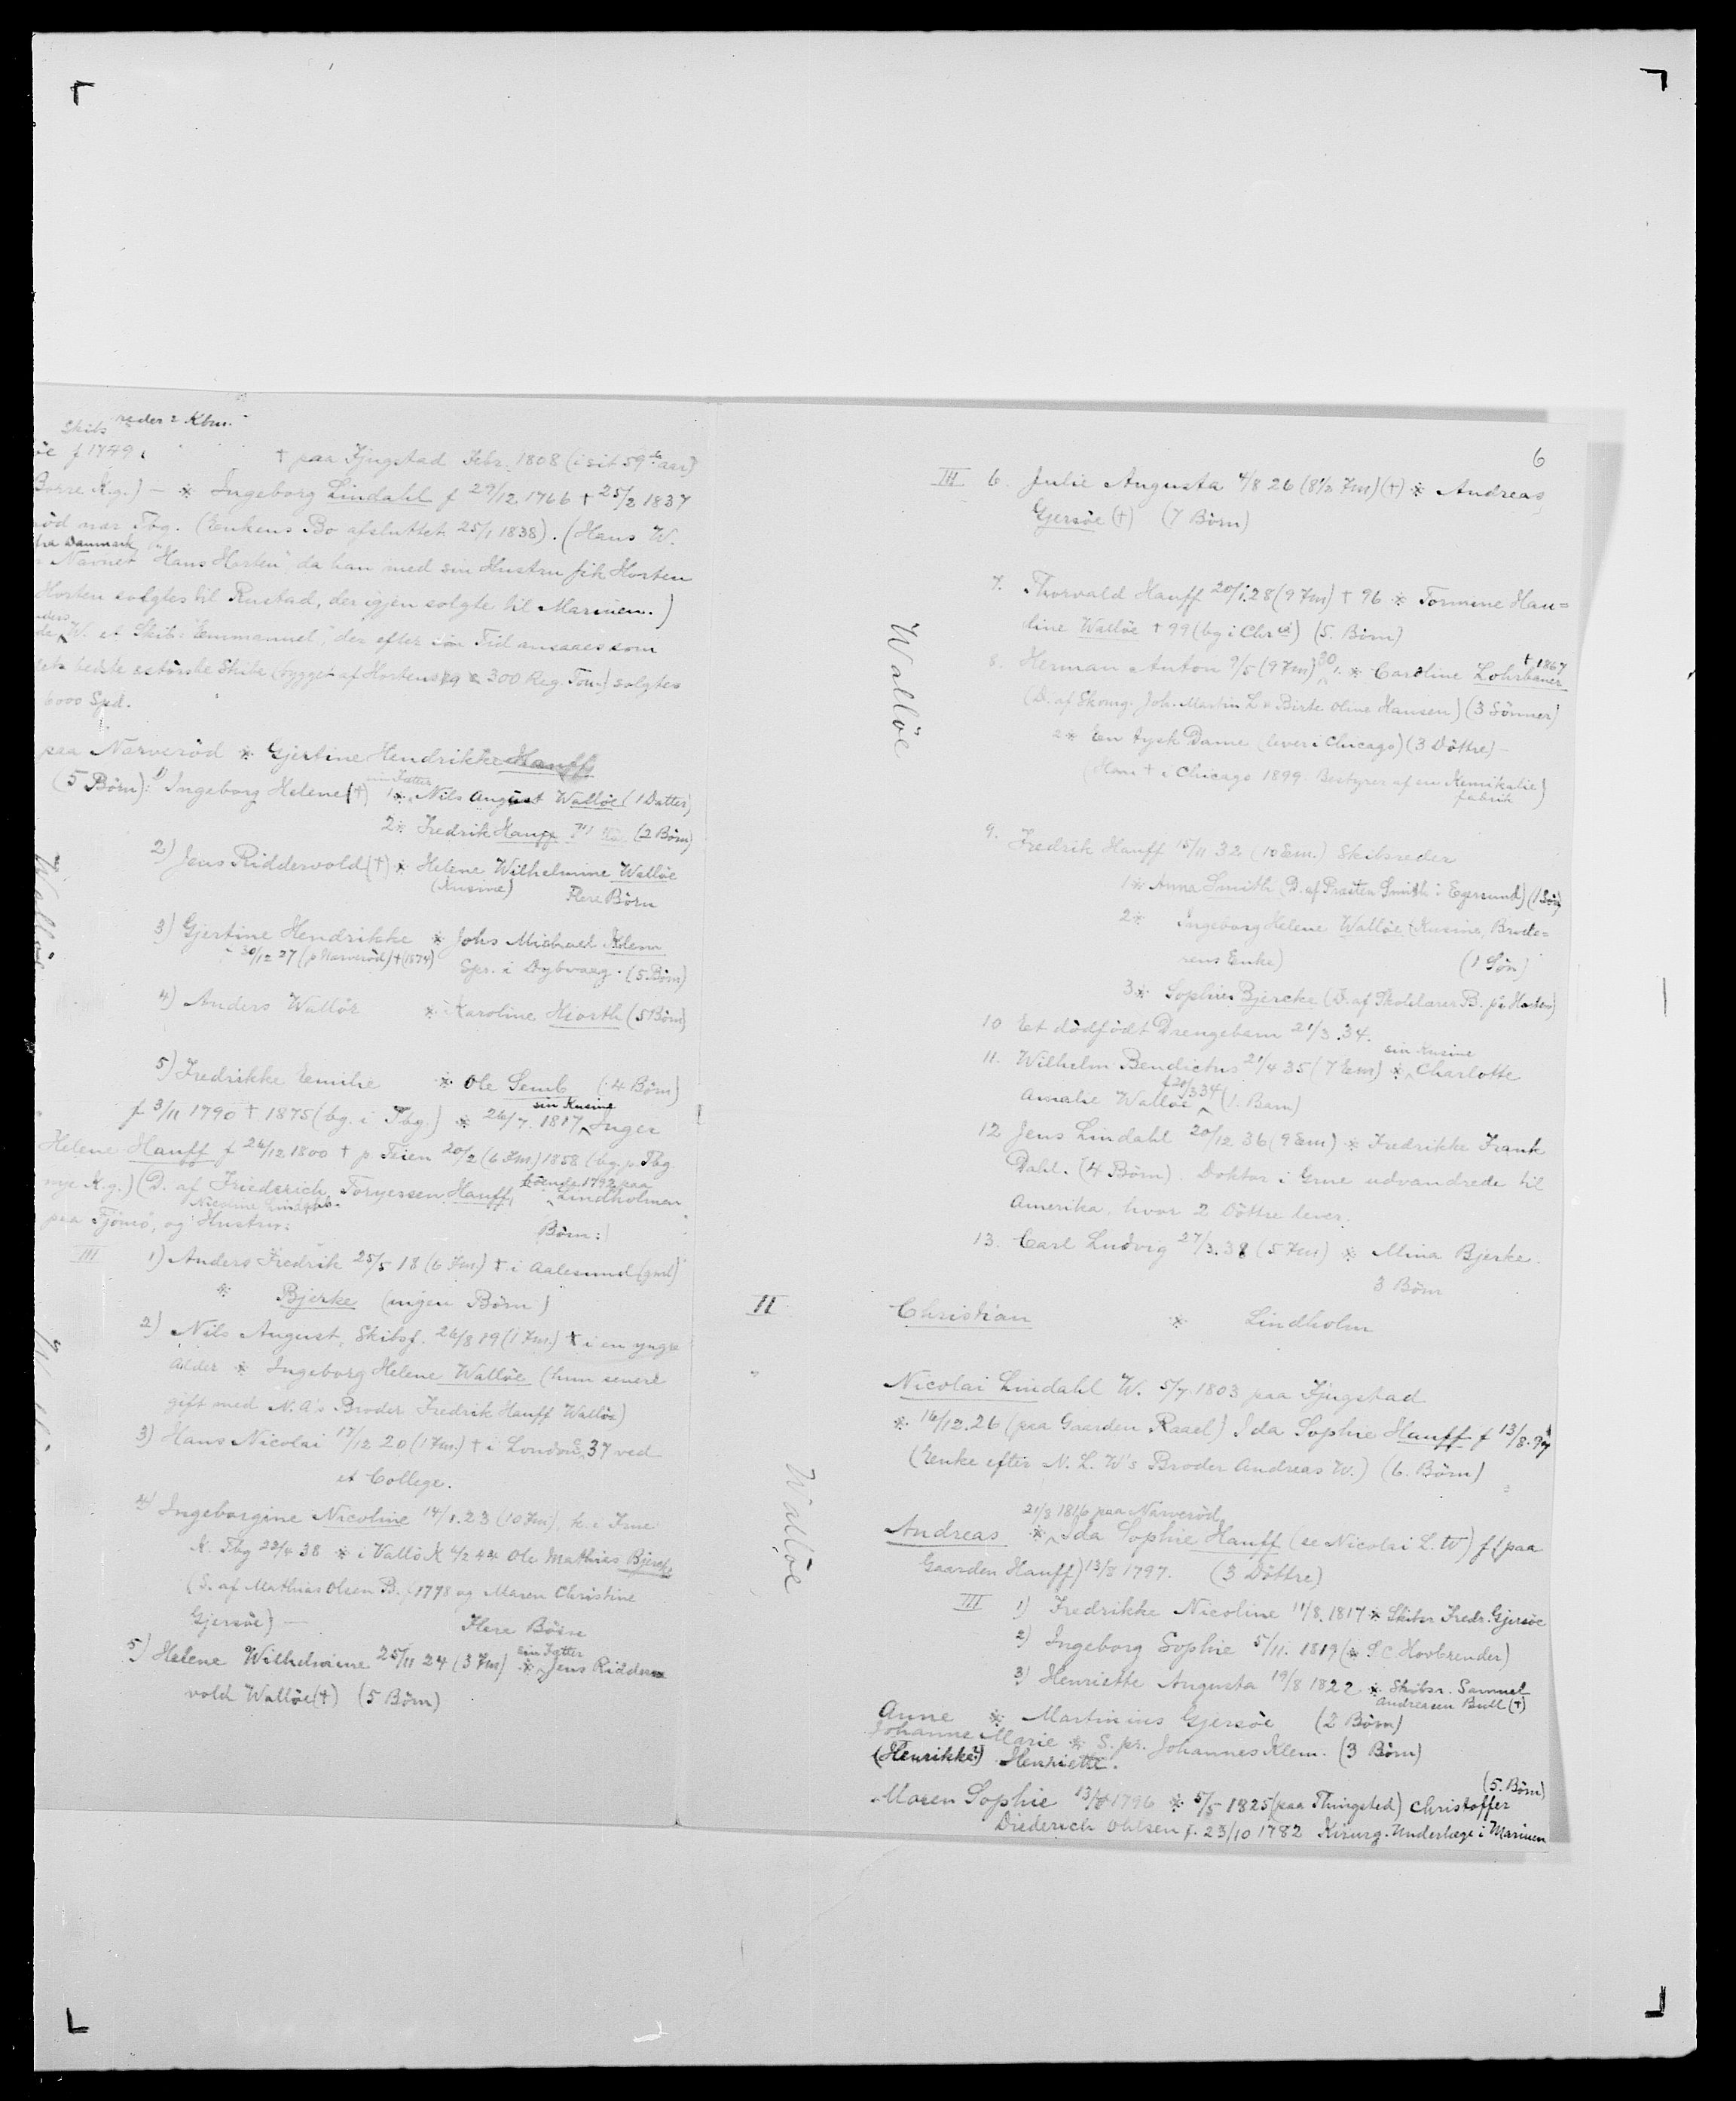 Skibsreder i Kbm.
öe f 1749. † paa Fjugstad Febr. 1808 (i sit 59de aar)
Borre K.g.) — * Ingeborg Lindahl f 29/12 1766 † 25/2 1837
röd nær Tbg. (Enkens Bo afsluttet 25/1 1838). (Hans W.
fra Danmark
Navnet "Hans Horten", da han med sin Hustru fik Horten
Horten solgtes til Rustad, der igjen solgte til Marinen.)
W. et Skib: "Emmanuel", der efter sin Tid ansaaes som
bedste & störste Skibe (bygget af Hortens 300 Reg. Ton.) solgtes
6000 Spd.
paa Narveröd * Gjertine Hendrikke Hauff
(5 Börn): 1) Ingeborg Helene (†) 1 * sin Fætter Nils August Wallöe (1 Datter)
2 * Fredrik Hauff (2 Börn)
2) Jens Riddervold (†) * Helene Wilhelmine Wallöe
(Kusine) Flere Börn
3) Gjertine Hendrikke * Johs Michael Klem
30/12 27 (p Narveröd) † (1874) Spr. i Dybvaag. (5 Börn)
4) Anders Wallöe * Karoline Hiorth (5 Börn)
5) Fredrikke Emilie * Ole Semb (4 Börn)
f 3/11 1790 † 1875 (bg. i Tbg.) * 26/7. 1817 sin Kusine Inger
Helene Hauff f 26/12 1800 † p. Teien 20/2 (6 Fm) 1858 (bg. p. Tbg.
nye K.g.) (D. af Friederich Toryersen Hauff, boende 1792 paa Lindholmen
paa Tjömö, og Hustru: Nicoline Lindahl.
Börn:
III 1) Anders Fredrik 25/5 18 (6 Fm.) † i Aalesund (gml)
* Bjerke (ingen Börn)
2) Nils August, Skibsf. 26/8 19 (1 Fm.) † i en yngre
Alder * Ingeborg Helene Wallöe (hun senere
gift med N. A's Broder Fredrik Hauff Wallöe)
3) Hans Nicolai 17/12 20 (1 Fm.) † i London 37 ved
et College.
4) Ingeborgine Nicoline 14/1. 23 (10 Fm), k. i Frue
K. Tbg 22/4 38 * i Vallö K 4/2 44 Ole Mathias Bjerke
(S. af Mathias Olsen B. f 1778 og Maren Christine
Gjersöe) — Flere Börn
5) Helene Wilhelmine 25/11 24 (3 Fm) * sin Fætter Jens Ridder
vold Wallöe (†) (5 Börn)
6
III 6. Julie Augusta 4/8 26 (8 1/2 Fm) (†) * Andreas
Gjersöe (†) (7 Börn)
7. Thorvald Hauff 20/1. 28 (9 Fm) † 96 * Tormine Hau=
line Wallöe † 99 (bg i Chr.) (5. Börn)
8. Herman Anton 9/5 (9 Fm) 30 1. * Caroline Lohrbauer † 1867
(D. af Skomg. Joh. Martin L & Birte Oline Hansen) (3 Sönner)
2 * En tysk Dame (lever i Chicago) (3 Döttre) —
(Han † i Chicago 1899. Bestyrer af en Kemikalie
fabrik)
9. Fredrik Hauff 15/11 32 (10 Em.) Skibsreder
1 * Anna Smith (D. af Præsten Smith i Egersund) (1 Sön)
2 * Ingeborg Helene Wallöe (Kusine, Brode=
rens Enke) (1 Sön)
3 * Sophie Bjercke (D. af Skolelærer B. fra Horten)
10 Et dödfödt Drengebarn 21/3. 34.
11. Wilhelm Bendictus 21/4 35 (7 Em) * sin Kusine Charlotte
Amalie Wallöe f 20/3 34 (1. Barn)
12 Jens Lindahl 20/12 36 (9 Em) * Fredrikke Frank
Dahl. (4 Börn). Doktor i Grue udvandrede til
Amerika, hvor 2 Döttre lever.
13. Carl Ludvig 27/3. 38 (5 Fm) * Mina Bjerke.
3 Börn
II Christian * Lindholm
" Nicolai Lindahl W. 5/7. 1803 paa Fjugstad
* 16/12. 26 (paa Gaarden Raael) Ida Sophie Hauff f 13/8. 97
(Enke efter N. L. W's Broder Andreas W.) (6. Börn)
Andreas * 21/8 1816 paa Narveröd Ida Sophie Hauff (se Nicolai L. W) f (paa
Gaarden Hauff) 13/8 1797. (3 Döttre)
III 1) Fredrikke Nicoline 11/8. 1817 * Skibsr Fredr. Gjersöe
2) Ingeborg Sophie 5/11. 1819 (* S C Hovbrender)
3) Henriette Augusta 19/8 1822 * Skibsr. Samuel
Andreasen Bull (†)
Anne * Martinius Gjersöe (2 Börn)
Johanne Marie * S. pr. Johannes Klem. (3 Börn)
(Henrikke?) Henriette.
Maren Sophie 13/8 1796 * 5/5 1825 (paa Thingsted) Christoffer (5. Börn)
Diederich Ohlsen f. 23/10 1782 Kirurg. Underlæge i Marinen
Wallöe
Wallöe
Wallöe